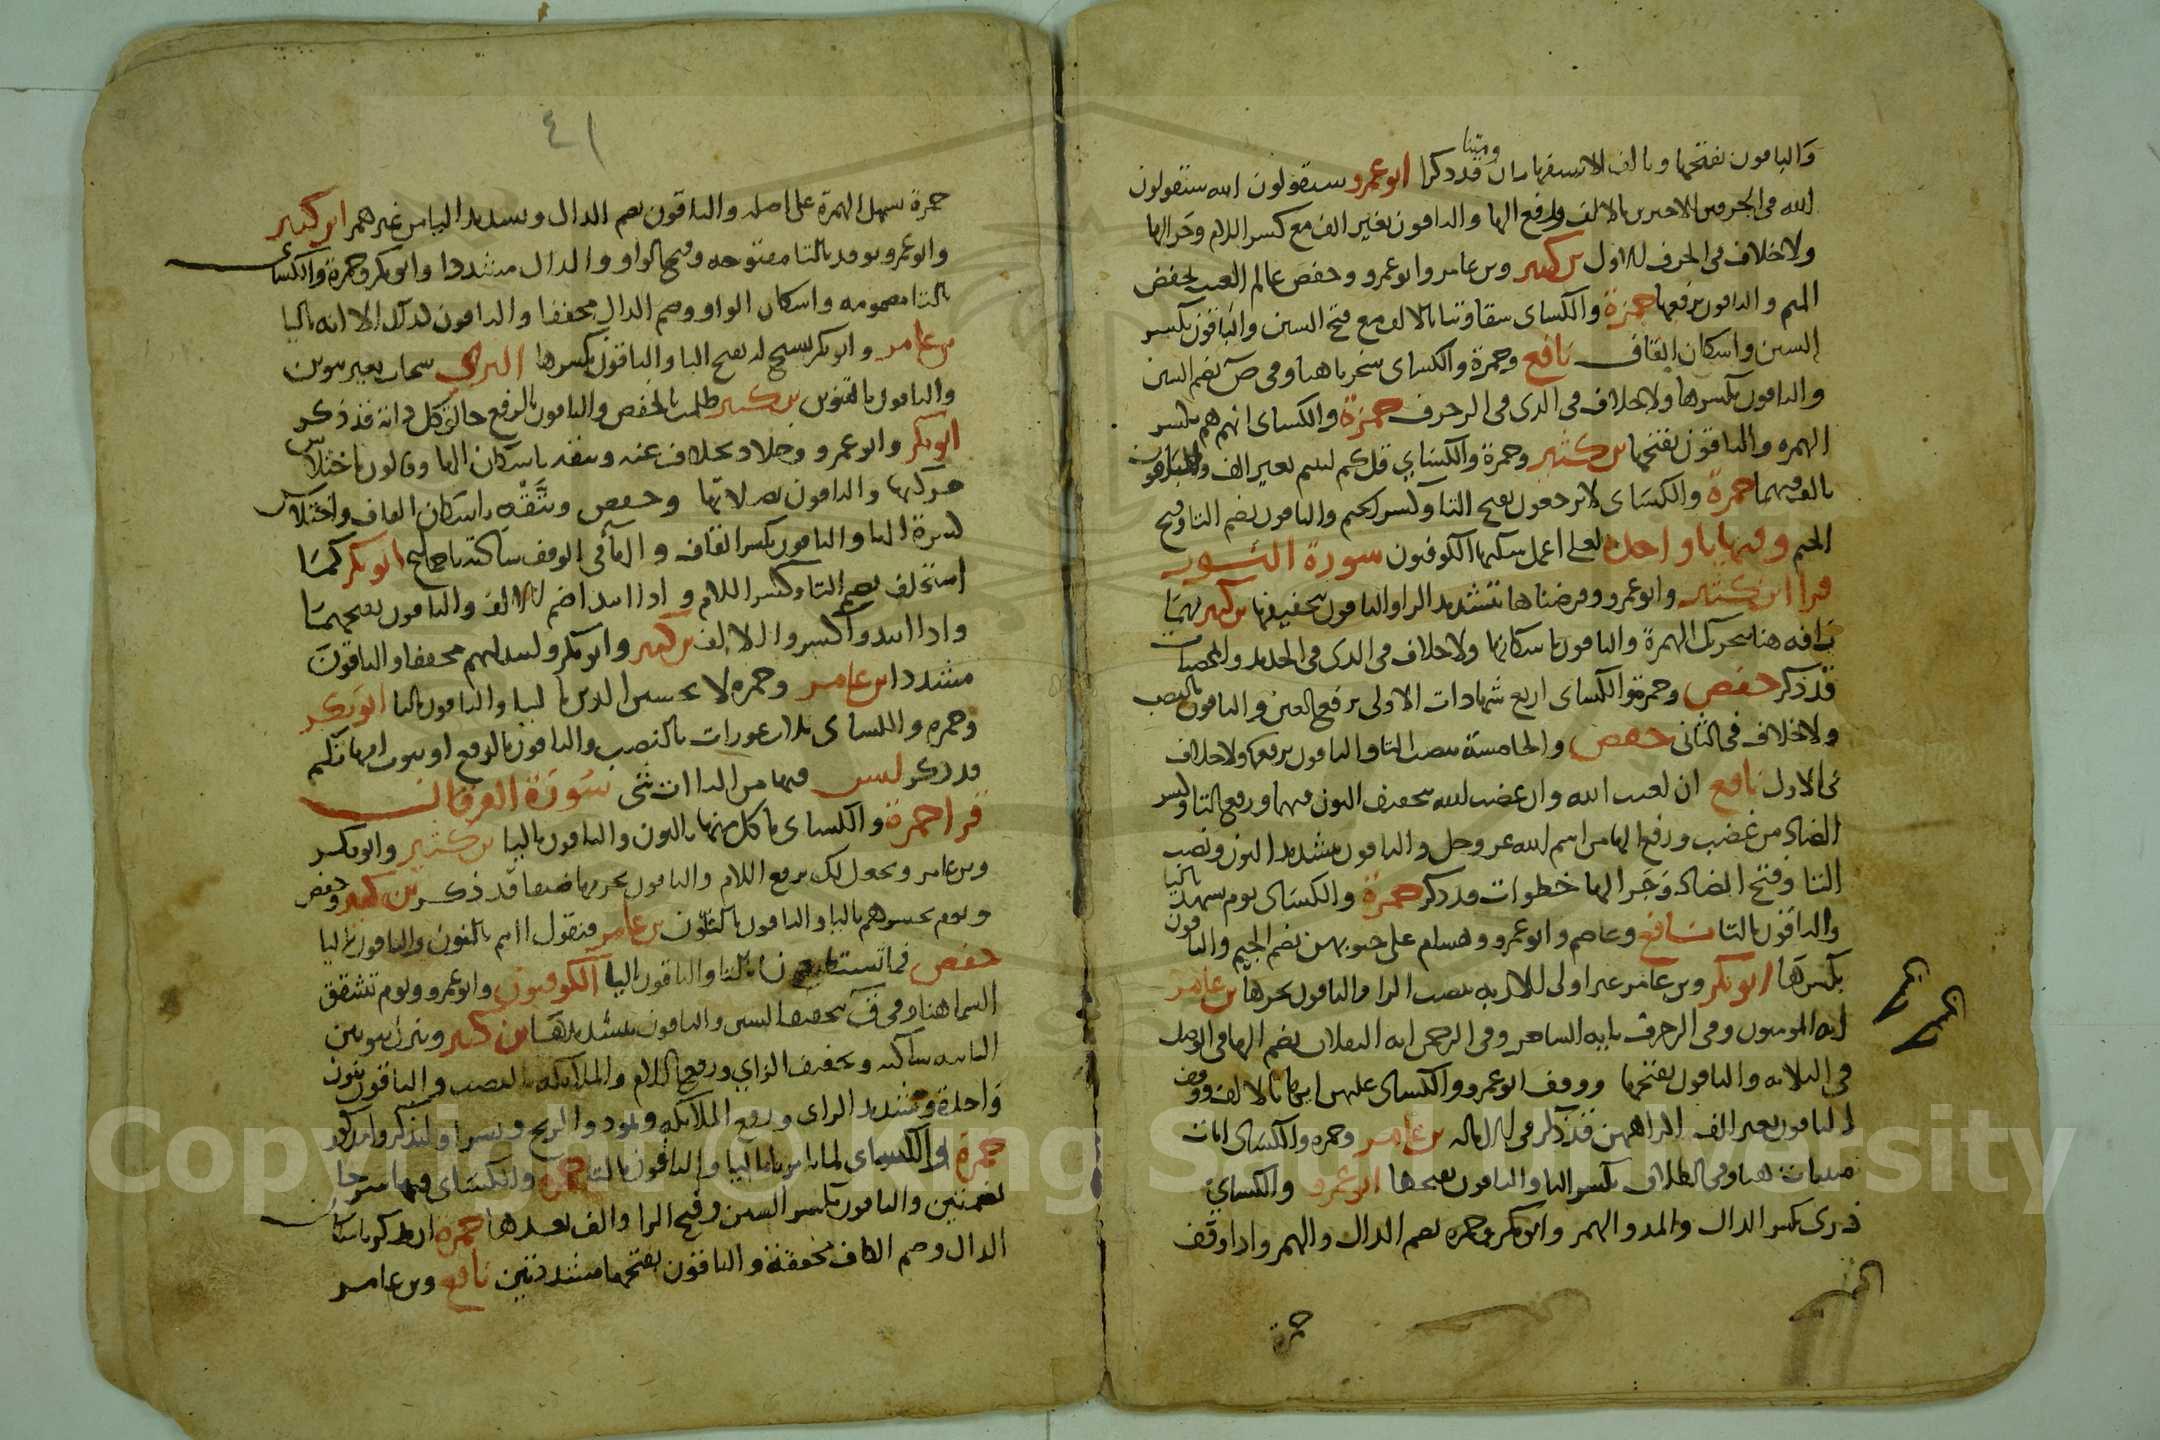 والباقون بفتحها وبالف الاستفهام ومتنا قد ذكرا ابو عمرو سيقولون الله سيقولون
الله في الحرفين الاخيرين بالالف ورفع الها والباقون بغير الف مع كسر اللام وجر الها
ولا خلاف في الحرف الاول بن كثير وبن عامر وابو عمرو وحفص عالم الغيب بخفض
الميم والباقون برفعها حمزة والكساى شقاوتنا بالالف مع فتح الشين والباقون بكسر
الشين واسكان القاف نافع وحمزة والكساى سخريا هنا وفي ص بضم السين
والباقون بكسرها ولا خلاف في الذى في الزخرف حمزة والكساى انهم هم بكسر
الهمزه والباقون بفتحها بن كثير وحمزة والكساي قل كم لبثتم بغير الف والباقون
بالف فيهما حمزة والكساى لا ترجعون بفتح التا وكسر الجيم والباقون بضم التا وفتح
الجيم وفيها يا واحدة لعلى اعمل سكنها الكوفيون سورة النور
قرا ابن كثير وابو عمرو وفرضناها بتشديد الرا والباقون بتخفيفها بن كثير بهما
رافه هنا بتحريك الهمزة والباقون باسكانها ولا خلاف في الذى في الحديد والمحصنات
قد ذكر حفص وحمزة والكساى اربع شهادات الاولى برفع العين والباقون بالنصب
ولا خلاف في الثانى حفص والخامسة بنصب التا والباقون برفعها ولا خلاف
في الاول نافع ان لعنت الله وان غضب الله بتخفيف النون فيهما ورفع التا وكسر
الضاد من غضب ورفع الها من اسم الله عز وجل والباقون بتشديد النون ونصب
التا وفتح الضاد وجر الها خطوات قد ذكر حمزة والكساى يوم يشهد باليا
والباقون بالتا نافع وعاصم وابو عمرو وهشام على جيوبهن بضم الجيم والباقون
بكسرها ابو بكر وبن عامر غير اولى الاربه بنصب الرا والباقون بجرها بن عامر
ايه المومنون وفي الزخرف يايه الساحر وفي الرحمن ايه الثقلان بضم الها في الوصل
في الثلاثه والباقون بفتحها ووقف ابو عمرو والكساى عليهن ايها بالالف ووقف
الباقون بغير الف اكراههن قد ذكر في الاماله بن عامر وحمزه والكساى ايات
مبينات هنا وفي الطلاق بكسر اليا والباقون بفتحها ابو عمرو والكساي
درى بكسر الدال والمد والهمز وابو بكر وحمزه بضم الدال والهمز واذا وقف
حمزة
٤١
حمزة سهل الهمزة على اصله والباقون بضم الدال وتشديد اليا من غير همز ابن كثير
وابو عمرو توقد بالتا مفتوحه وفتح الواو والدال مشددا وابو بكر وحمزة والكساى
بالتا مضمومه واسكان الواو وضم الدال مخففا والباقون كذلك الا انه باليا
بن عامر وابو بكر يسبح له بفتح البا والباقون بكسرها البزي سحاب بغير تنوين
والباقون بالتنوين بن كثير ظلمات بالخفض والباقون بالرفع خالق كل دابة قد ذكر
ابو بكر وابو عمرو وخلاد بخلاف عنه ويتقه باسكان الها وقالون باختلاس
حركتها والباقون بصلاتها وحفص ويتقه باسكان القاف واختلاس
كسرة الها والباقون بكسر القاف والها في الوقف ساكنة باجماع ابو بكر كما
استخلف بضم التا وكسر اللام واذا ابتدا ضم الالف والباقون بفتحهما
واذا ابتدوا كسروا الالف بن كثير وابو بكر وليبدلنهم مخففا والباقون
مشددا بن عامر وحمزه لا يحسبن الذين باليا والباقون بالتا ابو بكر
وحمزه والكساى ثلاث عورات بالنصب والباقون بالرفع او بيوت امهاتكم
قد ذكر ليس فيها من الياات شى سورة الفرقان
قرا حمزة والكساى ناكل منها بالنون والباقون باليا بن كثير وابو بكر
وبن عامر ويجعل لك برفع اللام والباقون بجزمها ضيقا قد ذكر بن كثير وحفص
ويوم يحشرهم باليا والباقون بالنون بن عامر فنقول اانتم بالنون والباقون باليا
حفص فما تستطيعون بالتا والباقون باليا الكوفيون وابو عمرو ويوم تشقق
السما هنا وفي ق بتخفيف الشين والباقون بتشديدها بن كثير وننزل بنونين
الثانيه ساكنه وتخفيف الزاي ورفع اللام والملايكه بالنصب والباقون بنون
واحدة وتشديد الزاى ورفع الملايكه وثمود والريح ونشرا وليذكروا قد ذكر
حمزة والكساى لما يامرنا باليا والباقون بالتا حمزة والكساى فيها سرجا
بضمتين والباقون بكسر السين وفتح الرا والف بعدها حمزه ان يذكر باسكان
الدال وضم الكاف مخففة والباقون بفتحهما مشددتين نافع وبن عامر
Copyright © King Saud University